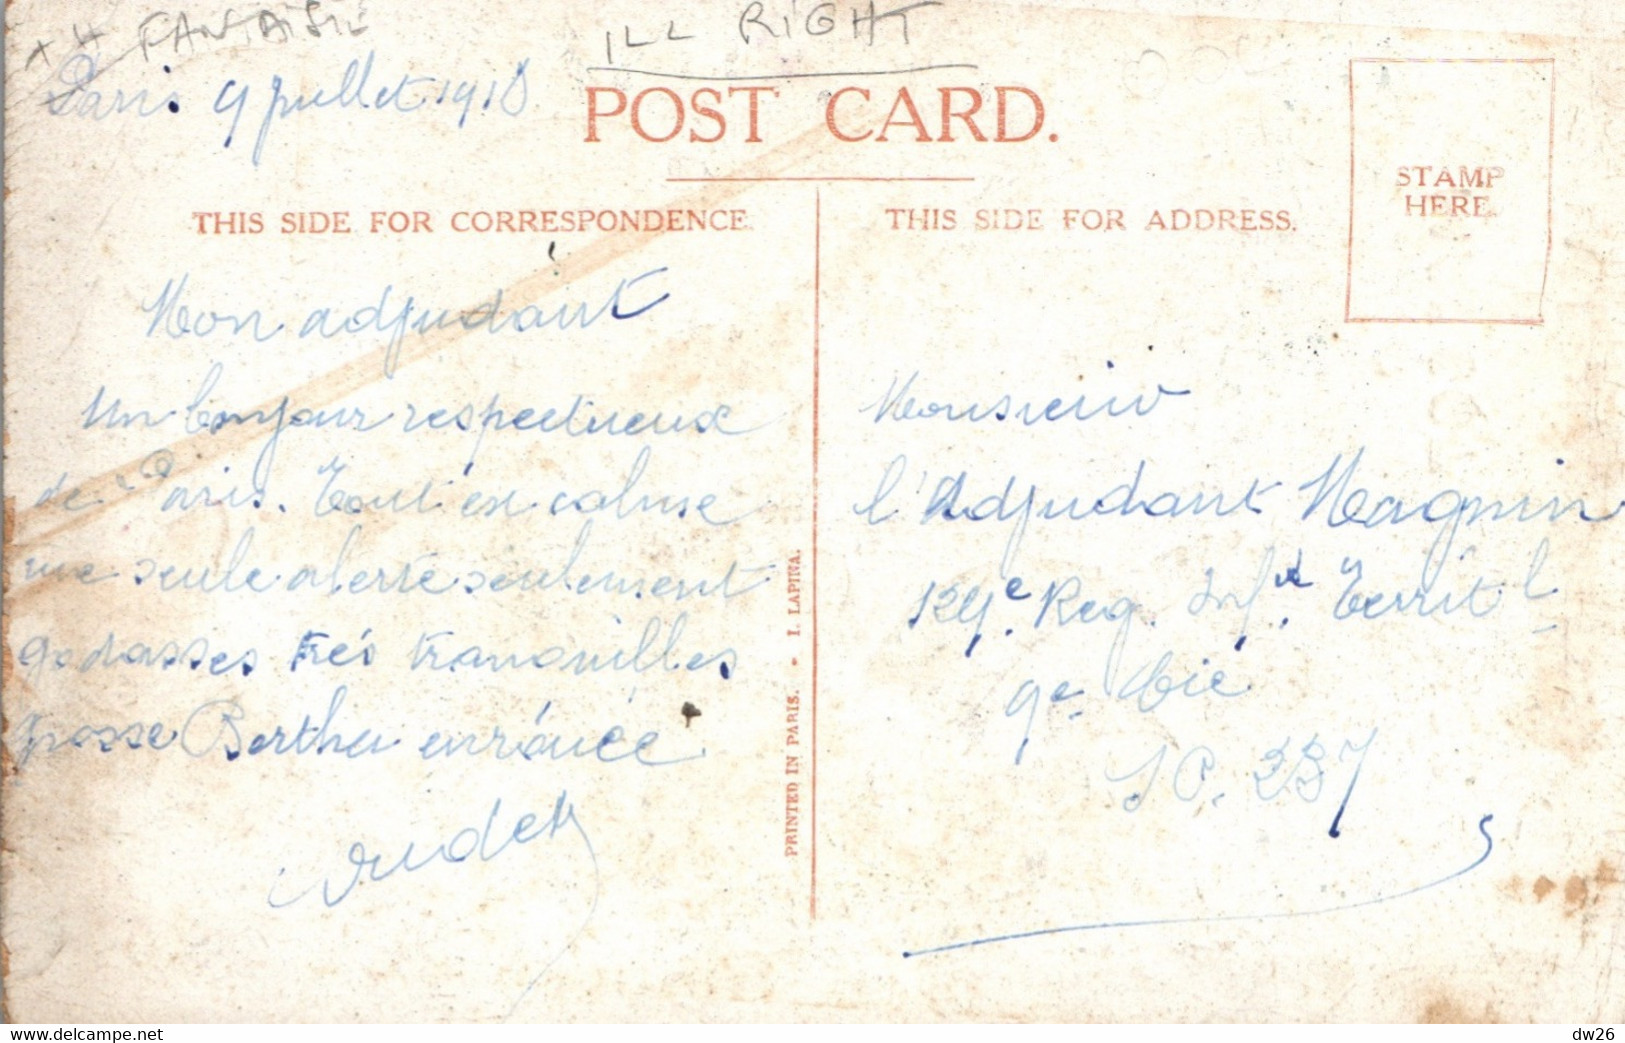 FANTAISIE
ILL RIGHT
Paris. 9 juillet 1918
POST CARD.
STAMP
HERE.
THIS SIDE FOR CORRESPONDENCE
THIS SIDE FOR ADDRESS.
Mon adjudant
Un bonjour respectueux
de Paris. Tout est calme
une seule alerte seulement
godasses très tranquilles
grosse Bertha enrouée
Monsieur
l'Adjudant Magnin
129e. Reg. Inft. Territl
9e Cie
SP. 237
PRINTED IN PARIS. - I. LAPINA.
www.delcampe.net
dw26